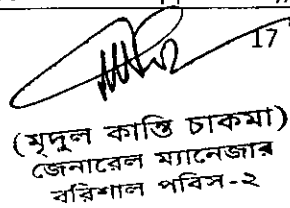 17
(মৃদুল কান্তি চাকমা)
জেনারেল ম্যানেজার
বরিশাল পবিস-২